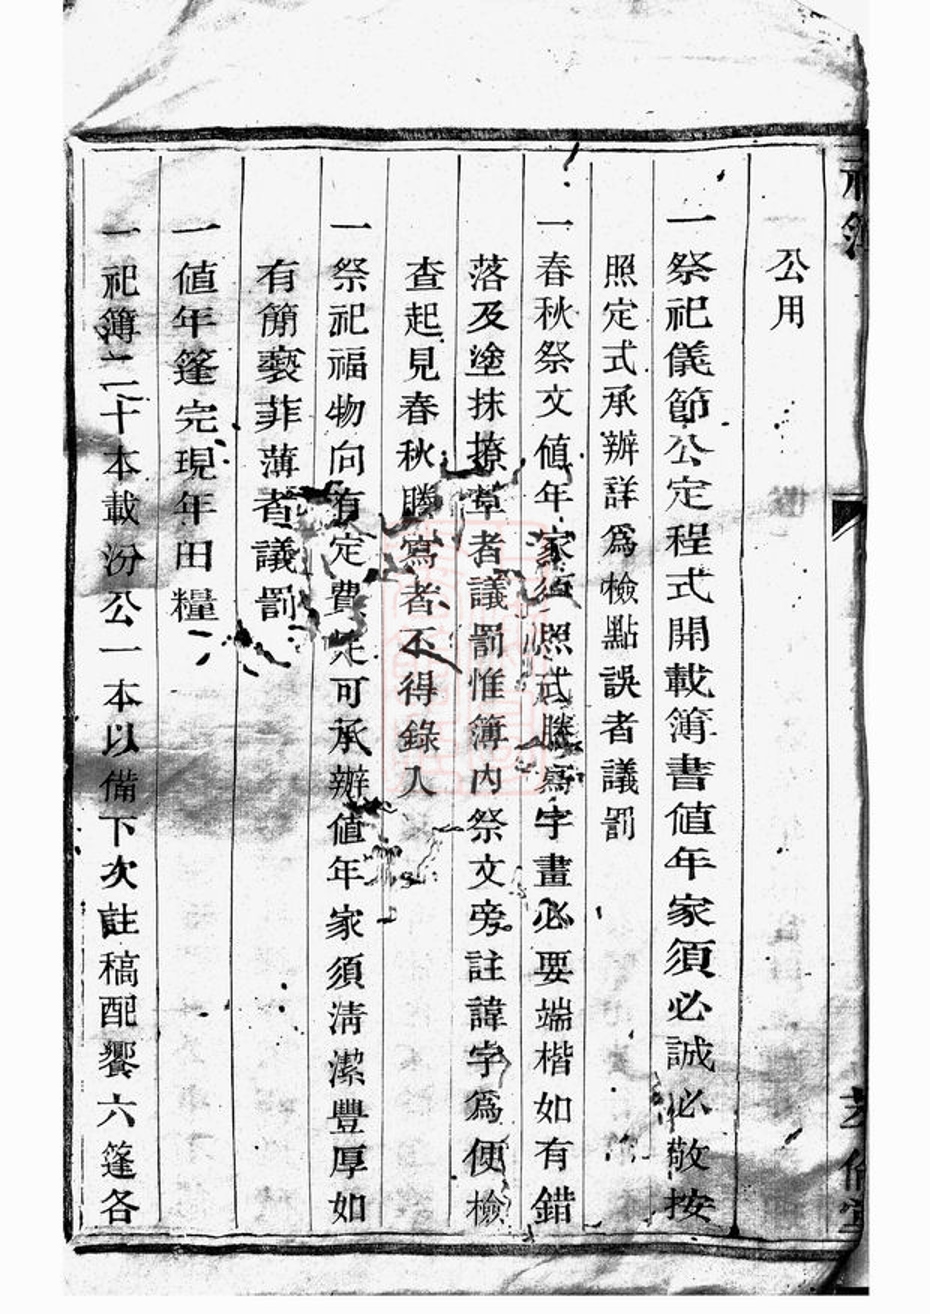 祀簿
公用
一祭祀儀節公定程式開載簿書值年家須必誠必敬按
照定式承辦詳爲檢點誤者議罰
一春秋祭文値年家須照式謄寫字畫必要端楷如有錯
落及塗抹撩草者議罰惟簿內祭文旁註諱字爲便檢
查起見春秋謄寫者不得錄入
一祭祀福物向有定費儘可承辦値年家須淸潔豐厚如
有簡褻菲薄者議罰
一値年篷完現年田糧
一祀簿二十本載汾公一本以備下次註稿配饗六篷各